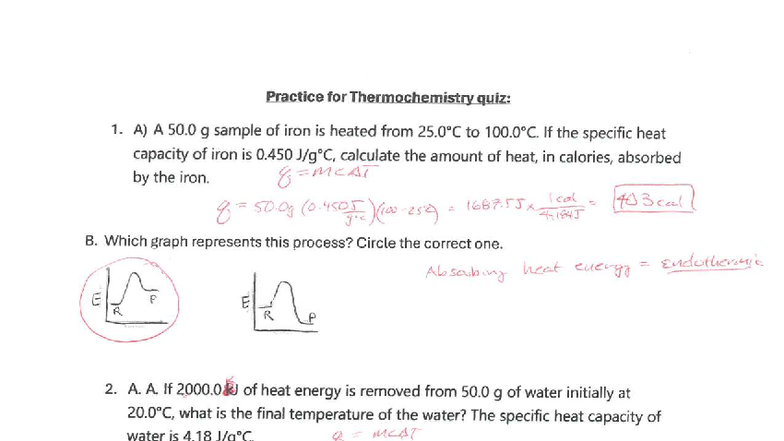 Practice for Thermochemistry quiz:
1. A) A 50.0 g sample of iron is heated from 25.0°C to 100.0°C. If the specific heat
capacity of iron is 0.450 J/g°C, calculate the amount of heat, in calories, absorbed
by the iron.
q = mCΔT
q = 50.0g (0.450 J/g°C)(100-25°C) = 1687.5J x 1cal/4.184J = 403 cal
B. Which graph represents this process? Circle the correct one.
Absorbing heat energy = Endothermic
E R P
E R P
2. A. A. If 2000.0 J of heat energy is removed from 50.0 g of water initially at
20.0°C, what is the final temperature of the water? The specific heat capacity of
water is 4.18 J/g°C.
q = mCΔT